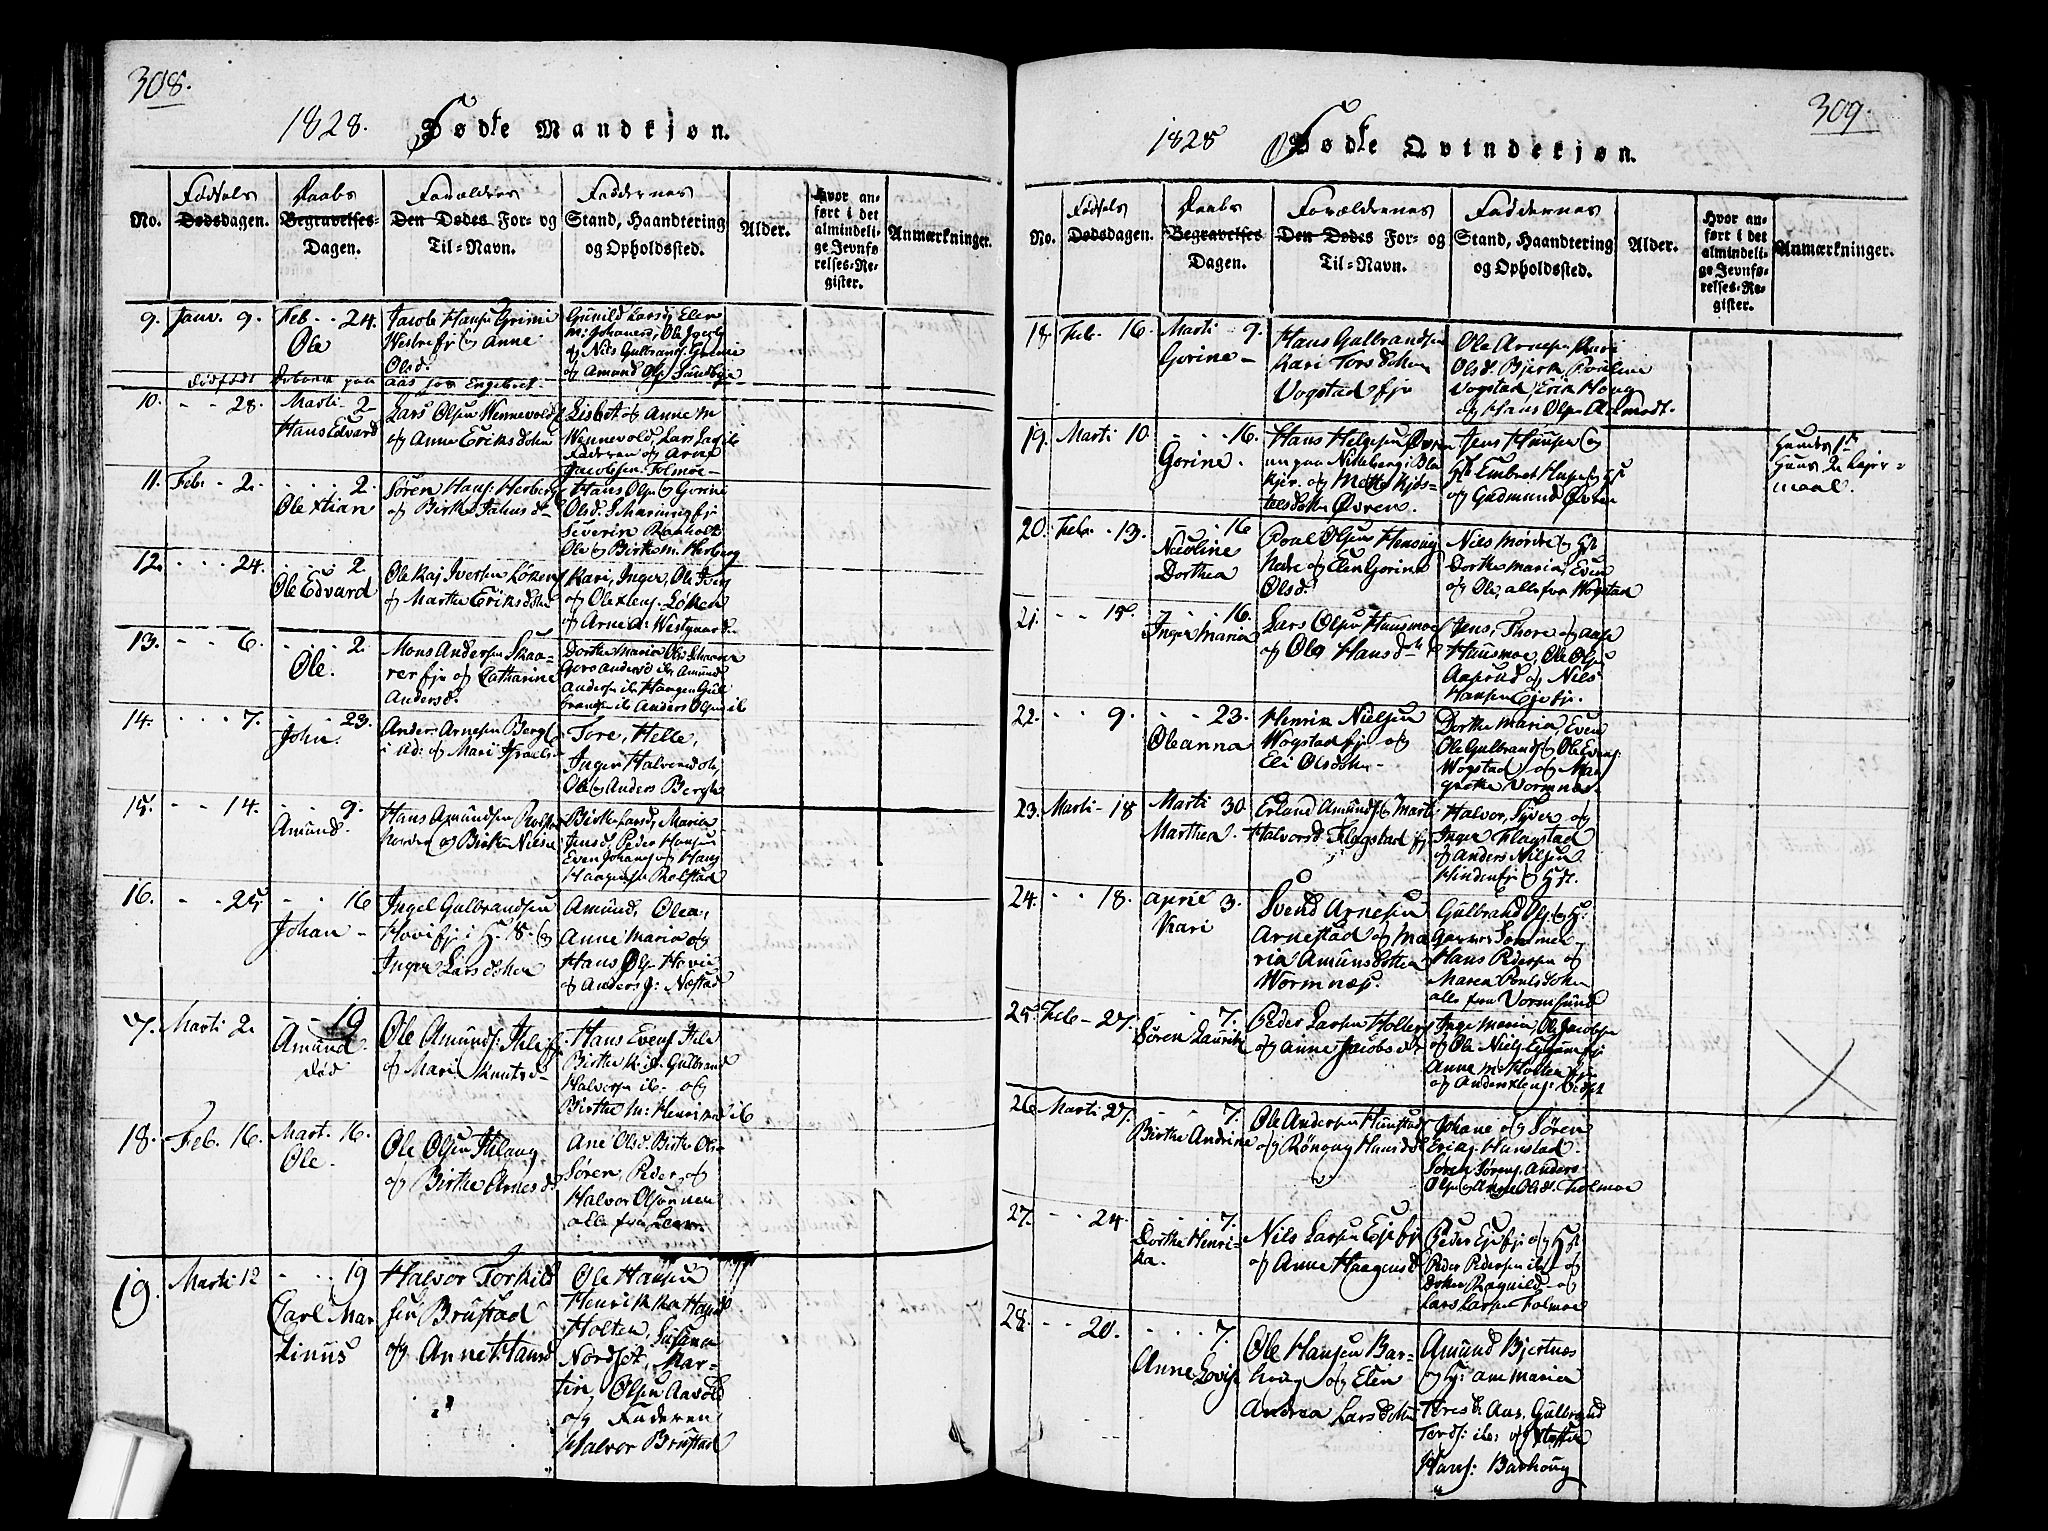 308.
1828. Fødte Mandkjøn.
No.
Fødsels
Dødsdagen.
Daabs
Begravelses-
Dagen.
Forældres
Den Dødes For- og
Til-Navn.
Faddernes
Stand, Haandtering
og Opholdssted.
Alder.
Hvor an-
ført i det
almindeli-
ge Jevnfø-
relses-Re-
gister.
Anmærkninger.
9. Janv. 9.
Feb - - 24.
Ole
Jacob Hansen Grimi
Westre fj og Anne
Olsd.
Gunild Larsd, Elen
M: Johanesd, Ole Jacobs
og Nils Gulbrands. Grimie
og Amund Ols. Sundbye
10. - - 28.
Marti 2
Hans Edvard
Lars Olsen Wennevold
og Anne Eriksdatter
Lisbet og Anne M
Wennevold, Lars
Faderen og Arne
Jacobsen Folmoe
11. Feb. - 2.
- - 2.
Ole Xtian
Sören Hans: Herberg
og Birthe
Hans Olsen og Gorine
Olsd.
Severin Ranholt
Ole og Birthe M. Herberg
12. - - 24.
- - 2
Ole Edvard
Ole Kaj Iversen Löken
og Marthe Eriksdatter
Kari, Inger, Ole Ivers
og Ole Löken
og Arne A: Westgaard
13. - - 6.
- - 2
Ole.
Mons Andersen Skaa-
rer fje og Catharine
Andersd.
Dorthe Maria Olsd.
Goro Andersd ib. Amund
Andersen ib. Haagen Gul
brands ib Anders Olsen ib
14. - - 7.
- - 23.
John.
Anders Arnesen Berg
i Od: og Mari Israels-
Tore, Helle,
Inger Halvorsd og
Ole og Anders Bergh
15. - - 14.
- - 9.
Amund.
Hans Amundsen
nordre og Birthe Nilsen
Birthe Larsd, Maria
Jensd, Peder Hansen
Even Johans og Hans
Haagensen Rolstad
16. - - 25
- - 16
Johan -
Ingel Gulbrandsen
Hovi fje i H. S. og
Inger Larsdatter
Amund, Olea,
Anne Maria og
Hans Olsen Hovie
og Anders J: Næstad
17. Marti 2.
- - 19
Amund.
død
Ole Amunds: Ihle fj
og Mari Knutsd-
Hans Evens Ihle
Birthe K. ib. Gulbrand
Halvorsen ib. og
Birthe M: Henriksd ib
18. Feb. 16.
Mart. 16.
Ole.
Ole Olsen
og Birthe Arnesd
Ane Olsd. Birthe Ols-
Sören, Peder, og
Halvor Olsønner
alle fra
19. Marti 12
- - 19
Carl Mar
tinus
Halvor Torkild
sen Brustad
og Anne Hansd
Ole Hansen
Henrikka Hansd
Holten, Susanne
Nordset, Mar-
tin Olsen Aavold
og Faderen
Halvor Brustad
309.
1828 Fødte Qvindekjøn.
No.
Fødsels
Dødsdagen.
Daabs
Begravelses
Dagen.
Forældrenes
Den Dødes For- og
Til-Navn.
Faddernes
Stand, Haandtering
og Opholdssted.
Alder.
Hvor an-
ført i det
almindeli-
ge Jevnfø-
relses-Re-
gister.
Anmærkninger.
18. Feb. 16.
Marti - 9.
Gorine -
Hans Gulbrandsen
Kari Torsdatter
Vogstad fje
Ole Arnesen, Kari
Olsd. Bjerke, Pauline
Vogstad, Erik Haug
og Hans Olsen Aamodt.
19. Marti 10.
- - 16.
Gorine.
Hans Helgesen Øvren
nu paa Nitteberg i Bla
kjer og Mette Kjøs-
telsdatter Øvren.
Jens Hansen og
Hst Embret Hansen og Hst
og Gudmund Øvren
Hendes 1ste
Hans 2de Lejer-
maal.
20. Feb. - 13.
- - 16
Nicoline
Dorthea
Poul Olsen Hensing
nedre og Elen Gorine
Olsd.
Nils Mordre og Hst
Dorthe Maria, Even
og Ole, alle fra Wogstad
21. - - 15.
- - 16.
Inger Maria
Lars Olsen Hansmoe
og Ola Hansd
Jens, Thore og Aase
Hansmoe, Ole Olsen
Aaserud og Nils
Hansen Eje fj.
22. - - 9.
- - 23.
Oleanna
Henrik Nielsen
Wogstad fje og
Eli Olsdatter -
Dorthe Maria, Even
Ole Gulbrands og Ole Evens:
Wogstad og Mar
grethe Vormnes.
23. Marti - 18
Marti 30
Marthea.
Erland Amunds og Marti
Halvorsd: Flagstad fj
Halvor, Syver og
Inger Flagstad
og Anders Nilsen
Hinden fj og Hst.
24. - - 18.
April 3.
Kari
Svend Arnesen
Arnestad og Ma
ria Amundsdatter
Wormnæs.
Gulbrand Ols. og H:
Hans Pedersen og
Maren Poulsdatter
alle fra Vormsund
25. Feb - 27.
- - 7.
Sören Laurits
Peder Larsen Holler
og Anne Jacobsdr
Inge Maria, Ole Jacobsen
og Ole Niels Eggum fj
Anne M: Holter fje
26. Marti 27.
- - 7.
Birthe Andrine
Ole Andersen Hunstad
og Rönnaug Hansd
Johane og Sören
Eriks. Hunstad
Sören Sörens. Anders
Olsen og Anne Olsd. Folmoe
27. - - 24
- - 7.
Dorthe Henri-
ka.
Nils Larsen Eje fj
og Anne Haagensd
Peder Eje fje og Hst
Peder Pedersen ib og
Ragnild og
Lars Larsen Folmoe
28. - - 20.
- - 7.
Anne Lovise
Ole Hansen Bar-
houg og Elin
Andrea Larsdatter
Amund Bjertnes
og Hs: Ane Maria
Toresd. Aas, Gulbrand
Tords: ib. og
Hans: Barhoug